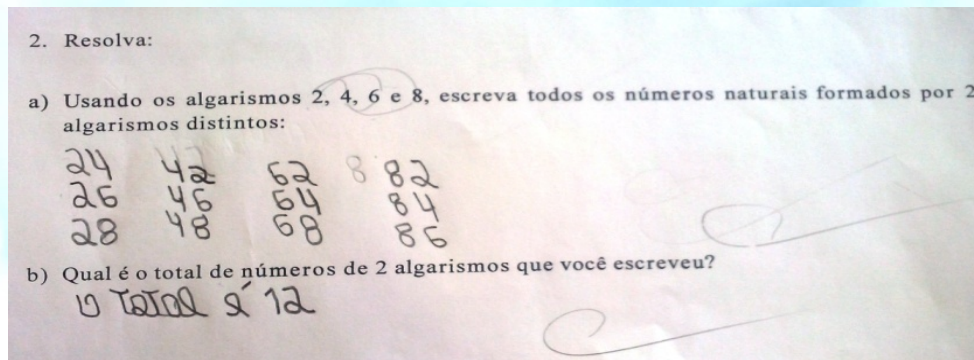 2. Resolva:
a) Usando os algarismos 2, 4, 6 e 8, escreva todos os números naturais formados por 2
algarismos distintos:
24 42 62 8 82
26 46 64 84
28 48 68 86
b) Qual é o total de números de 2 algarismos que você escreveu?
O TOTAL é 12